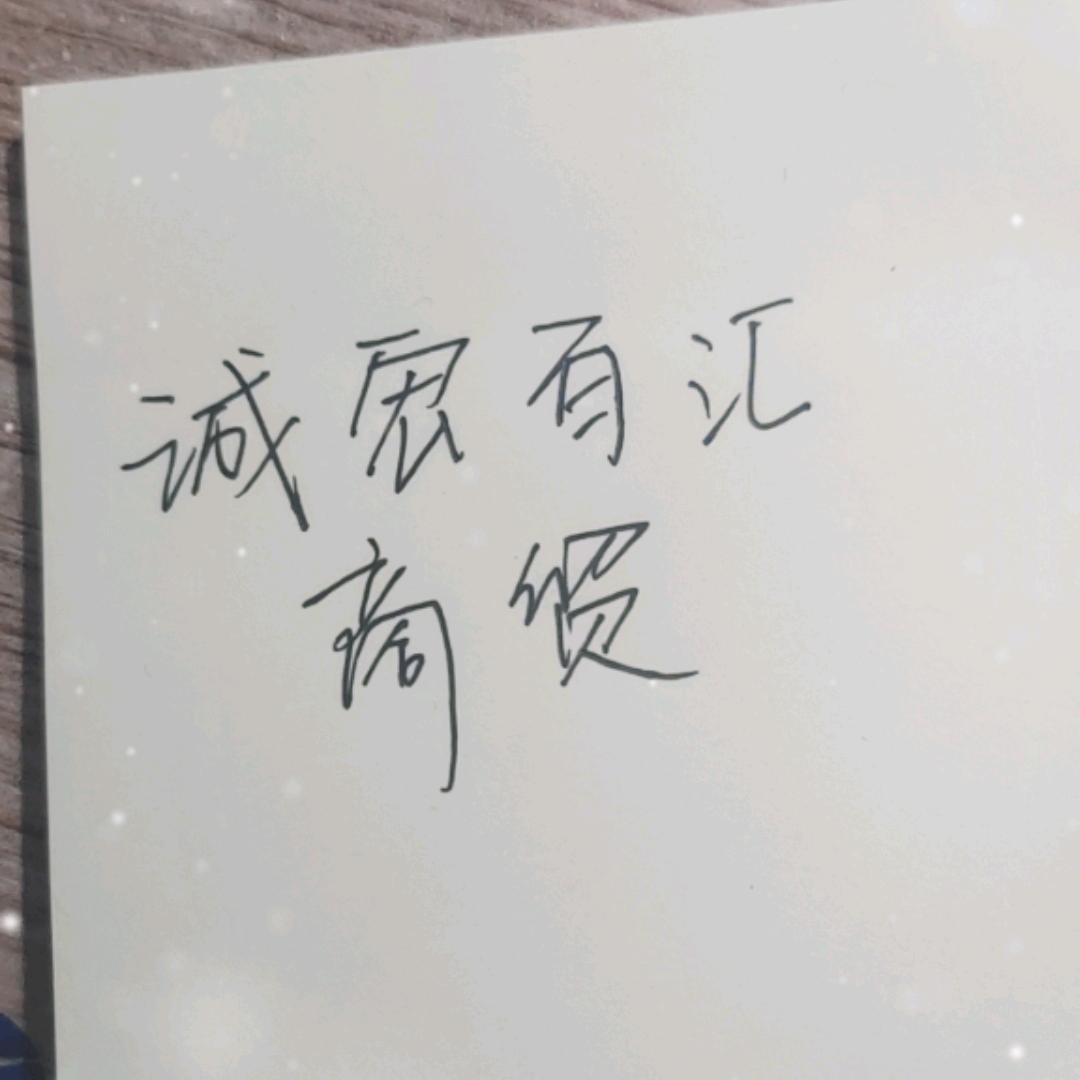 诚宏百汇
商贸